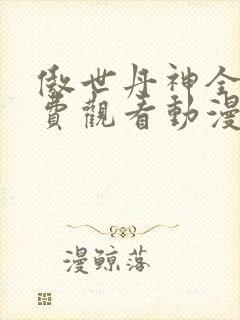 傲世丹神全
費觀看動漫
漫鯨落